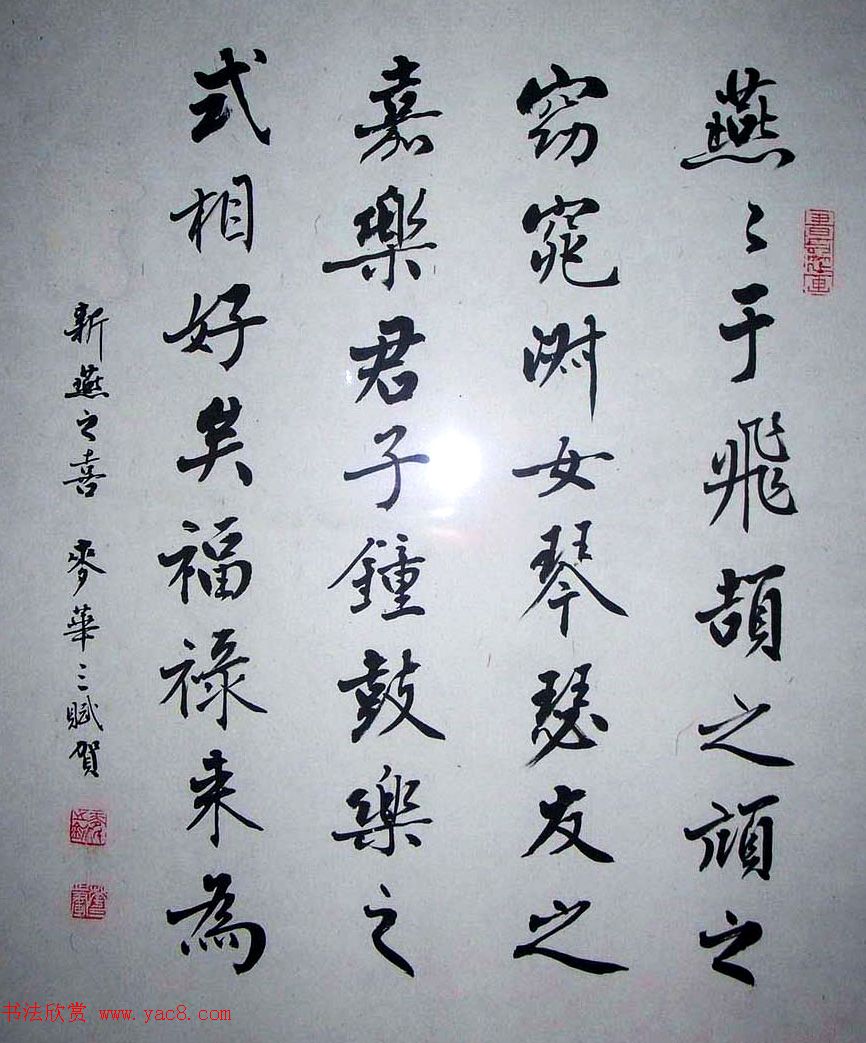 燕〻于飛頡之頏之
窈窕淑女琴瑟友之
嘉樂君子鐘鼓樂之
式相好矣福祿来為
新燕之喜 麥華三賦賀
书法欣赏 www.yac8.com